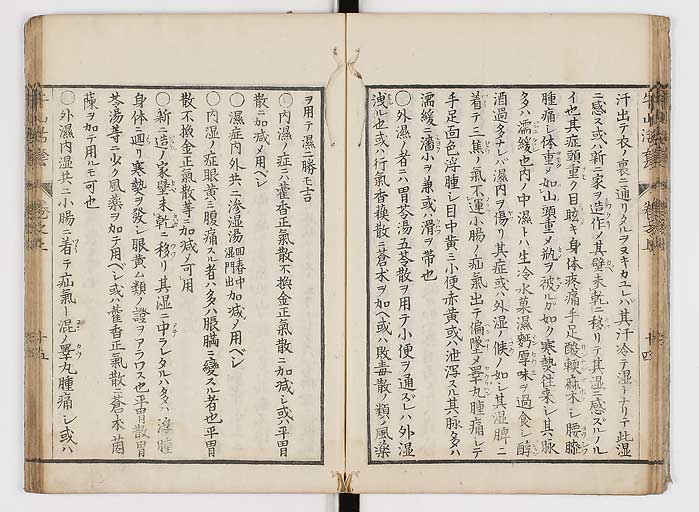 汗出テ衣ノ裏ニ通リタルヲヌキカユレバ其汗冷テ湿トナリテ此湿
ニ感ス或ハ新ニ家ヲ造作メ其壁未乾ニ移リテ其湿ニ感ズルノル
イ也其症頭重ク目眩キ身体疼痛手足酸軟麻木シ腰膝
腫痛シ体重メ如山頭重メ
ヲ被ルガ如ク寒熱往来シ其脉
多ハ濡緩也内ノ中濕トハ生冷水菓濕麪厚味ヲ過食シ醇
酒過多ナレバ濕内ヲ傷リ其症或ハ外湿ノ候ノ如シ其湿脾ニ
着テ三焦ノ氣不運小腸ノ疝氣出テ偏墜メ睾丸腫痛シテ
手足面色浮腫シ目中黄ニ小便赤黄或ハ泄泻スル其脉多ハ
濡緩ニ濇小ヲ兼或ハ滑ヲ帯也
○外濕ノ者ニハ胃苓湯五苓散ヲ用テ小便ヲ通ズレハ外湿
洩ル也或ハ行氣香蘓散ニ蒼木ヲ加ヘ或ハ敗毒散ノ類ノ風藥
ヲ用テ濕ニ勝モ吉
○内濕ノ症ニハ藿香正氣散不換金正氣散ニ加减シ或ハ平胃
散ニ加减メ用ベシ
○濕症内外共ニ滲湿湯 回春中湿門出 加减メ用ベシ
○内湿ノ症眼黄ニ腹痛スル者ハ多ハ脹瞞ニ変スル者也平胃
散不換金正氣散等ニ加减メ可用
○新ニ造ノ家壁未乾ニ移リ其湿ニ中ラレタルハ多ハ浮腫
身体ニ通リ寒熱ヲ發シ眼黄ム類ノ證ヲアラワス也平胃散胃
苓湯等ニ少ク風藥ヲ加テ用ベシ或ハ藿香正氣散ニ蒼木茵
蔯ヲ加テ用ルモ可也
○外濕内湿共ニ小腸ニ着テ疝氣ト混メ睾丸腫痛シ或ハ